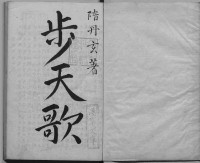 隋丹玄著
步天歌